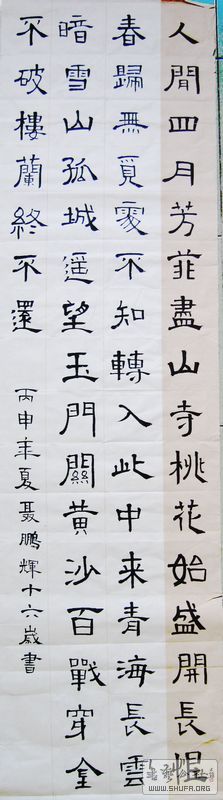 人間四月芳菲盡山寺桃花始盛開長恨
春歸無覓處不知轉入此中来青海長雲
暗雪山孤城遥望玉門關黃沙百戰穿金
不破樓蘭終不還
丙申年夏聂鵬輝十六歲書
WWW.SHUFA.ORG